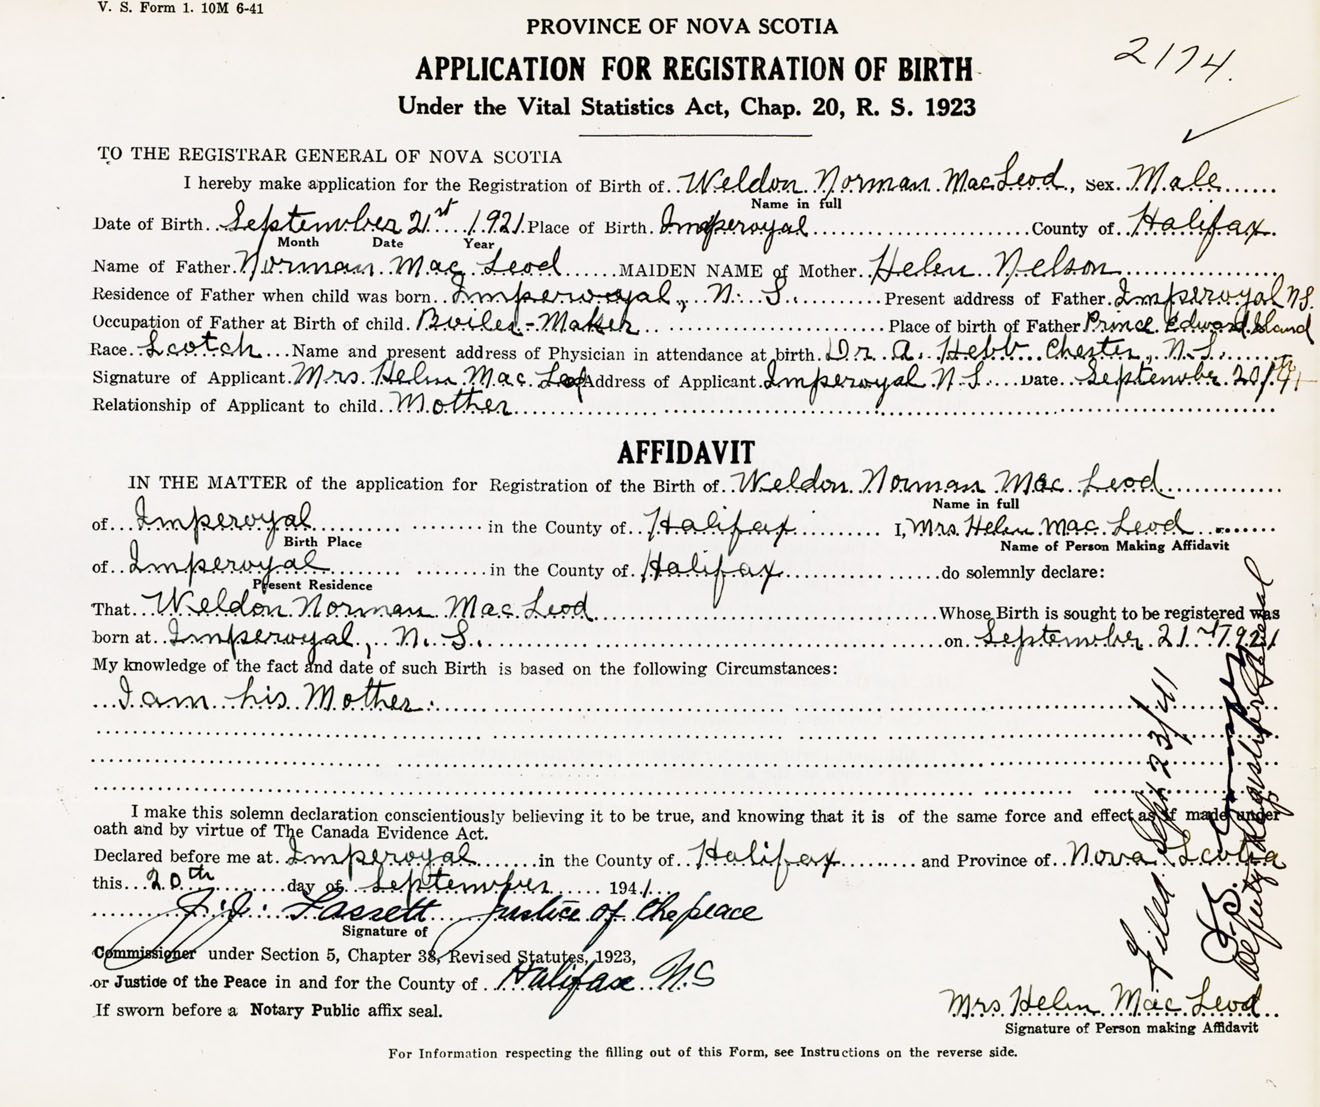 V. S. Form 1. 10M 6-41
PROVINCE OF NOVA SCOTIA
2174.
APPLICATION FOR REGISTRATION OF BIRTH
Under the Vital Statistics Act, Chap. 20, R. S. 1923
TO THE REGISTRAR GENERAL OF NOVA SCOTIA
I hereby make application for the Registration of Birth of Weldon Norman MacLeod, Sex Male
Name in full
Date of Birth September 21st 1921 Place of Birth Imperoyal County of Halifax
Month Date Year
Name of Father Norman Mac Leod MAIDEN NAME of Mother Helen Nelson
Residence of Father when child was born Imperoyal, N. S. Present address of Father Imperoyal N.S.
Occupation of Father at Birth of child Boiler-Maker Place of birth of Father Prince Edward Island
Race Scotch Name and present address of Physician in attendance at birth Dr. A. Hebb Chester, N.S.
Signature of Applicant Mrs. Helen Mac Leod Address of Applicant Imperoyal N.S. Date September 20th/41
Relationship of Applicant to child Mother
AFFIDAVIT
IN THE MATTER of the application for Registration of the Birth of Weldon Norman Mac Leod
Name in full
of Imperoyal in the County of Halifax I, Mrs. Helen Mac Leod
Birth Place Name of Person Making Affidavit
of Imperoyal in the County of Halifax do solemnly declare:
Present Residence
That Weldon Norman Mac Leod Whose Birth is sought to be registered was
born at Imperoyal, N. S. on September 21st 1921
My knowledge of the fact and date of such Birth is based on the following Circumstances:
I am his Mother.
I make this solemn declaration conscientiously believing it to be true, and knowing that it is of the same force and effect as if made under
oath and by virtue of The Canada Evidence Act.
Declared before me at Imperoyal in the County of Halifax and Province of Nova Scotia
this 20th day of September 1941.
Justice of the peace
Signature of
Commissioner under Section 5, Chapter 38, Revised Statutes, 1923,
or Justice of the Peace in and for the County of Halifax N.S
If sworn before a Notary Public affix seal.
Mrs. Helen Mac Leod
Signature of Person making Affidavit
For Information respecting the filling out of this Form, see Instructions on the reverse side.
Filed Sept 23/41
Deputy Registrar General